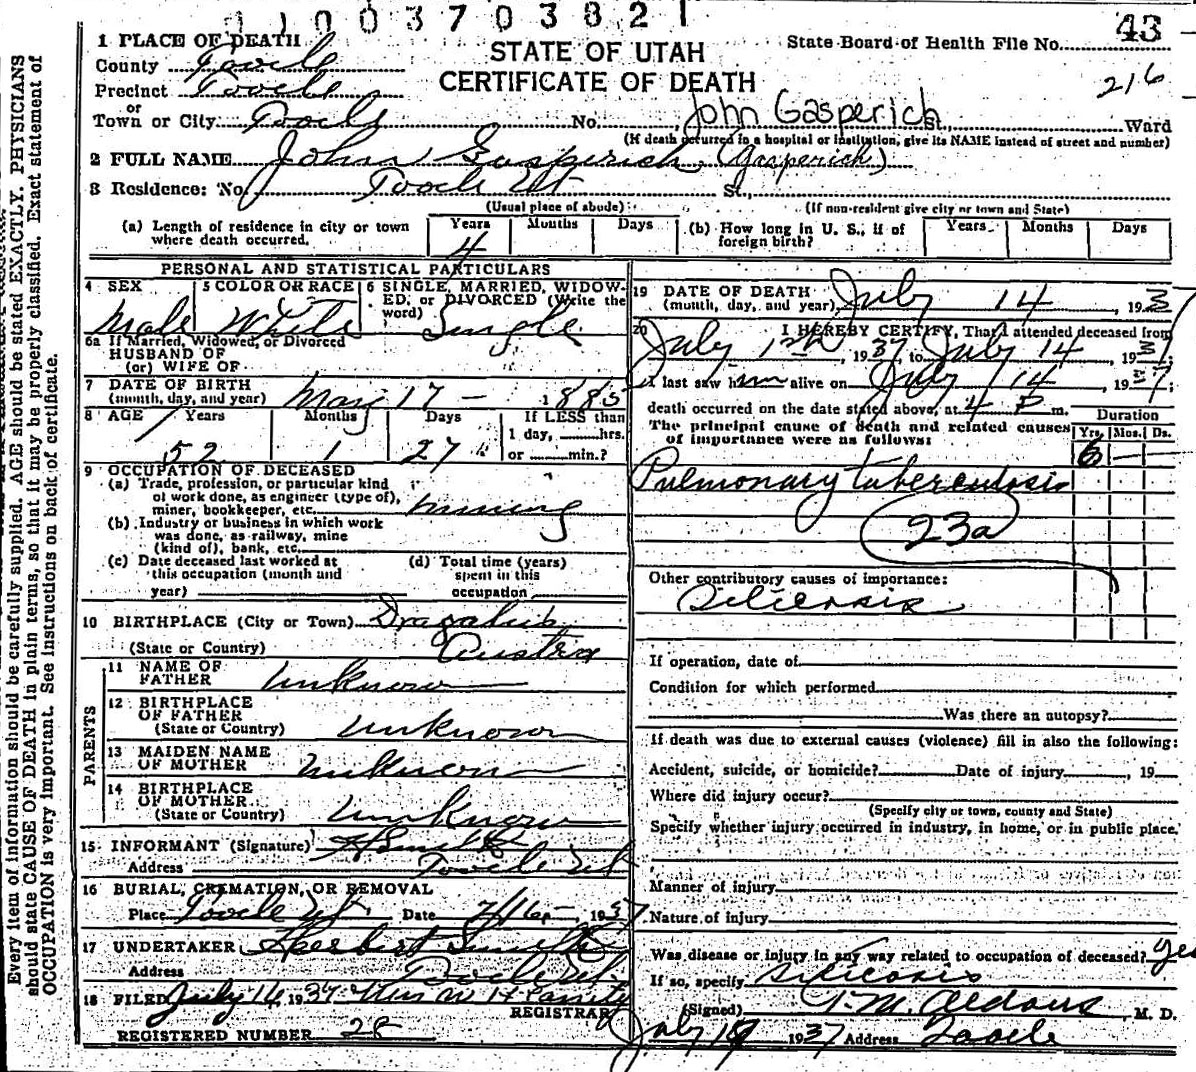 1 0 0 3 7 0 3 8 2 1
43
1 PLACE OF DEATH
STATE OF UTAH
CERTIFICATE OF DEATH
State Board of Health File No.
216
County Tooele
Precinct Tooele
or
Town or City Tooele No. St., Ward
John Gasperich
(If death occurred in a hospital or institution, give its NAME instead of street and number)
2 FULL NAME John Gasperich (Gasperich)
3 Residence: No. Tooele Ut St.,
(Usual place of abode) (If non-resident give city or town and State)
(a) Length of residence in city or town where death occurred. Years 4 Months Days
(b) How long in U. S., if of foreign birth? Years Months Days
PERSONAL AND STATISTICAL PARTICULARS
4 SEX Male
5 COLOR OR RACE White
6 SINGLE, MARRIED, WIDOWED, or DIVORCED (Write the word) Single
6a If Married, Widowed, or Divorced
HUSBAND OF
(or) WIFE OF
7 DATE OF BIRTH
(month, day, and year) May 17 - 1885
8 AGE Years Months Days If LESS than
52 1 27 1 day, hrs.
or min.?
9 OCCUPATION OF DECEASED
(a) Trade, profession, or particular kind
of work done, as engineer (type of),
miner, bookkeeper, etc. mining
(b) Industry or business in which work
was done, as railway, mine
(kind of), bank, etc.
(c) Date deceased last worked at
this occupation (month and
year)
(d) Total time (years)
spent in this
occupation
10 BIRTHPLACE (City or Town)
(State or Country) Austria
PARENTS
11 NAME OF
FATHER unknown
12 BIRTHPLACE
OF FATHER
(State or Country) unknown
13 MAIDEN NAME
OF MOTHER unknown
14 BIRTHPLACE
OF MOTHER
(State or Country) unknown
15 INFORMANT (Signature) H Smith
Address Tooele Ut
16 BURIAL, CREMATION, OR REMOVAL
Place Tooele Ut Date 7/16- 1937
17 UNDERTAKER Herbert Smith
Address Tooele Ut.
18 FILED July 16 1937
REGISTRAR
REGISTERED NUMBER 28
19 DATE OF DEATH
(month, day, and year) July 14 1937
20 I HEREBY CERTIFY, That I attended deceased from
July 12th, 1937, to July 14, 1937;
I last saw him alive on July 14, 1937;
death occurred on the date stated above, at 4 P m.
The principal cause of death and related causes
of importance were as follows:
Duration
Yrs. Mos. Ds.
6 — —
Pulmonary tuberculosis
23a
Other contributory causes of importance:
Silicosis
If operation, date of
Condition for which performed
Was there an autopsy?
If death was due to external causes (violence) fill in also the following:
Accident, suicide, or homicide? Date of injury , 19
Where did injury occur?
(Specify city or town, county and State)
Specify whether injury occurred in industry, in home, or in public place.
Manner of injury
Nature of injury
Was disease or injury in any way related to occupation of deceased? yes
If so, specify Silicosis
(Signed) T. M. Aldous, M. D.
July 1937 Address Tooele
Every item of information should be carefully supplied. AGE should be stated EXACTLY. PHYSICIANS
should state CAUSE OF DEATH in plain terms, so that it may be properly classified. Exact statement of
OCCUPATION is very important. See instructions on back of certificate.